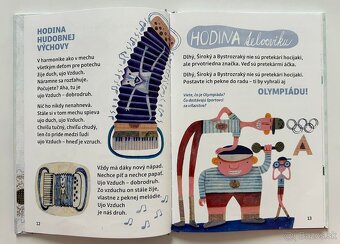 HODINA
HUDOBNEJ
VÝCHOVY
V harmonike ako v mechu
všetkým deťom pre potechu
žije duch, ujo Vzduch.
Náramne sa rozťahuje.
Počujete? Aha, tu je
ujo Vzduch – dobrodruh.
Nič ho nikdy nenahnevá.
Stále si v tom mechu spieva
ujo Vzduch, ujo Vzduch.
Chvíľu tučný, chvíľu chudý,
len čo príde, už je v ľudí
ujo Vzduch – hneď je vzruch.
Vždy má dáky nový nápad.
Nechce piť a nechce papať
ujo Vzduch – dobrodruh.
Zo vzduchu on stále žije,
vlastne z peknej melódie.
Ujo Vzduch
je náš druh.
12
HODINA telocviku
Dlhý, Široký a Bystrozraký nie sú pretekári hocijakí,
ale prvotriedna značka. Veď sú pretekármi áčka.
Dlhý, Široký a Bystrozraký nie sú pretekári hocijakí.
Postavte ich pekne do radu – tí by vyhrali aj
OLYMPIÁDU!
Viete, čo je Olympiáda?
Čo dostávajú športovci
za víťazstvo?
A
13